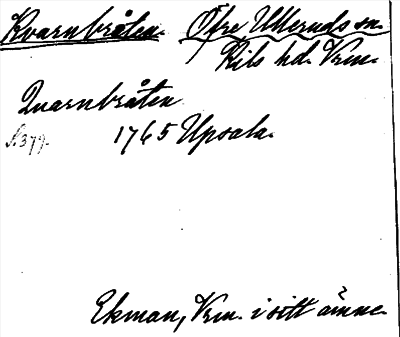 Kvarnbråten. Öfre Ulleruds sn.
Kils hd. Vrm.
Quarnbråten
S. 379. 1765 Upsala.
Ekman, Vrm. i sitt ämne.